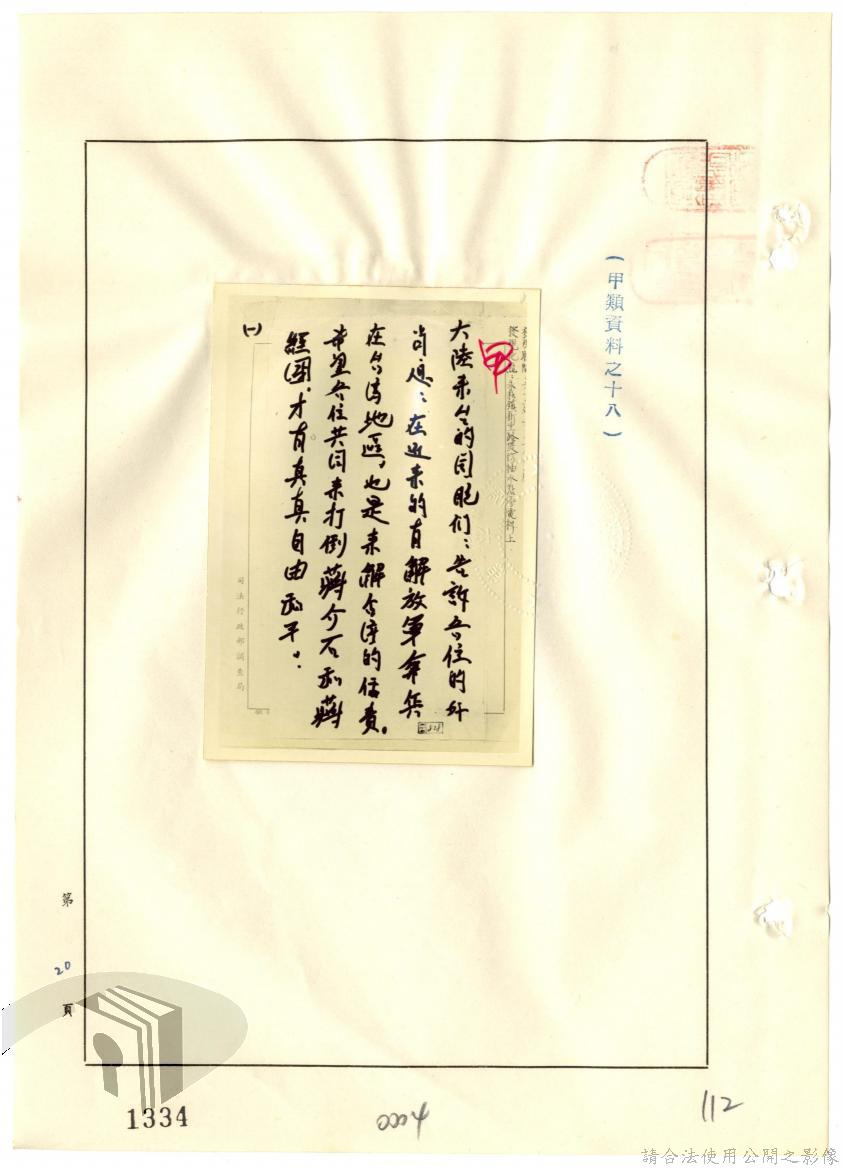 (甲類資料之十八)
甲
大陸來台的同胞们:告訴各位的好
肖息:在近來的有解放軍傘兵
在台湾地區,也是來解台湾的任責。
希望各位共同來打倒蔣介石和蔣
經國.才有真真自由和平.
(一)
司法行政部調查局
第 20 頁
1334
0004
112
請合法使用公開之影像